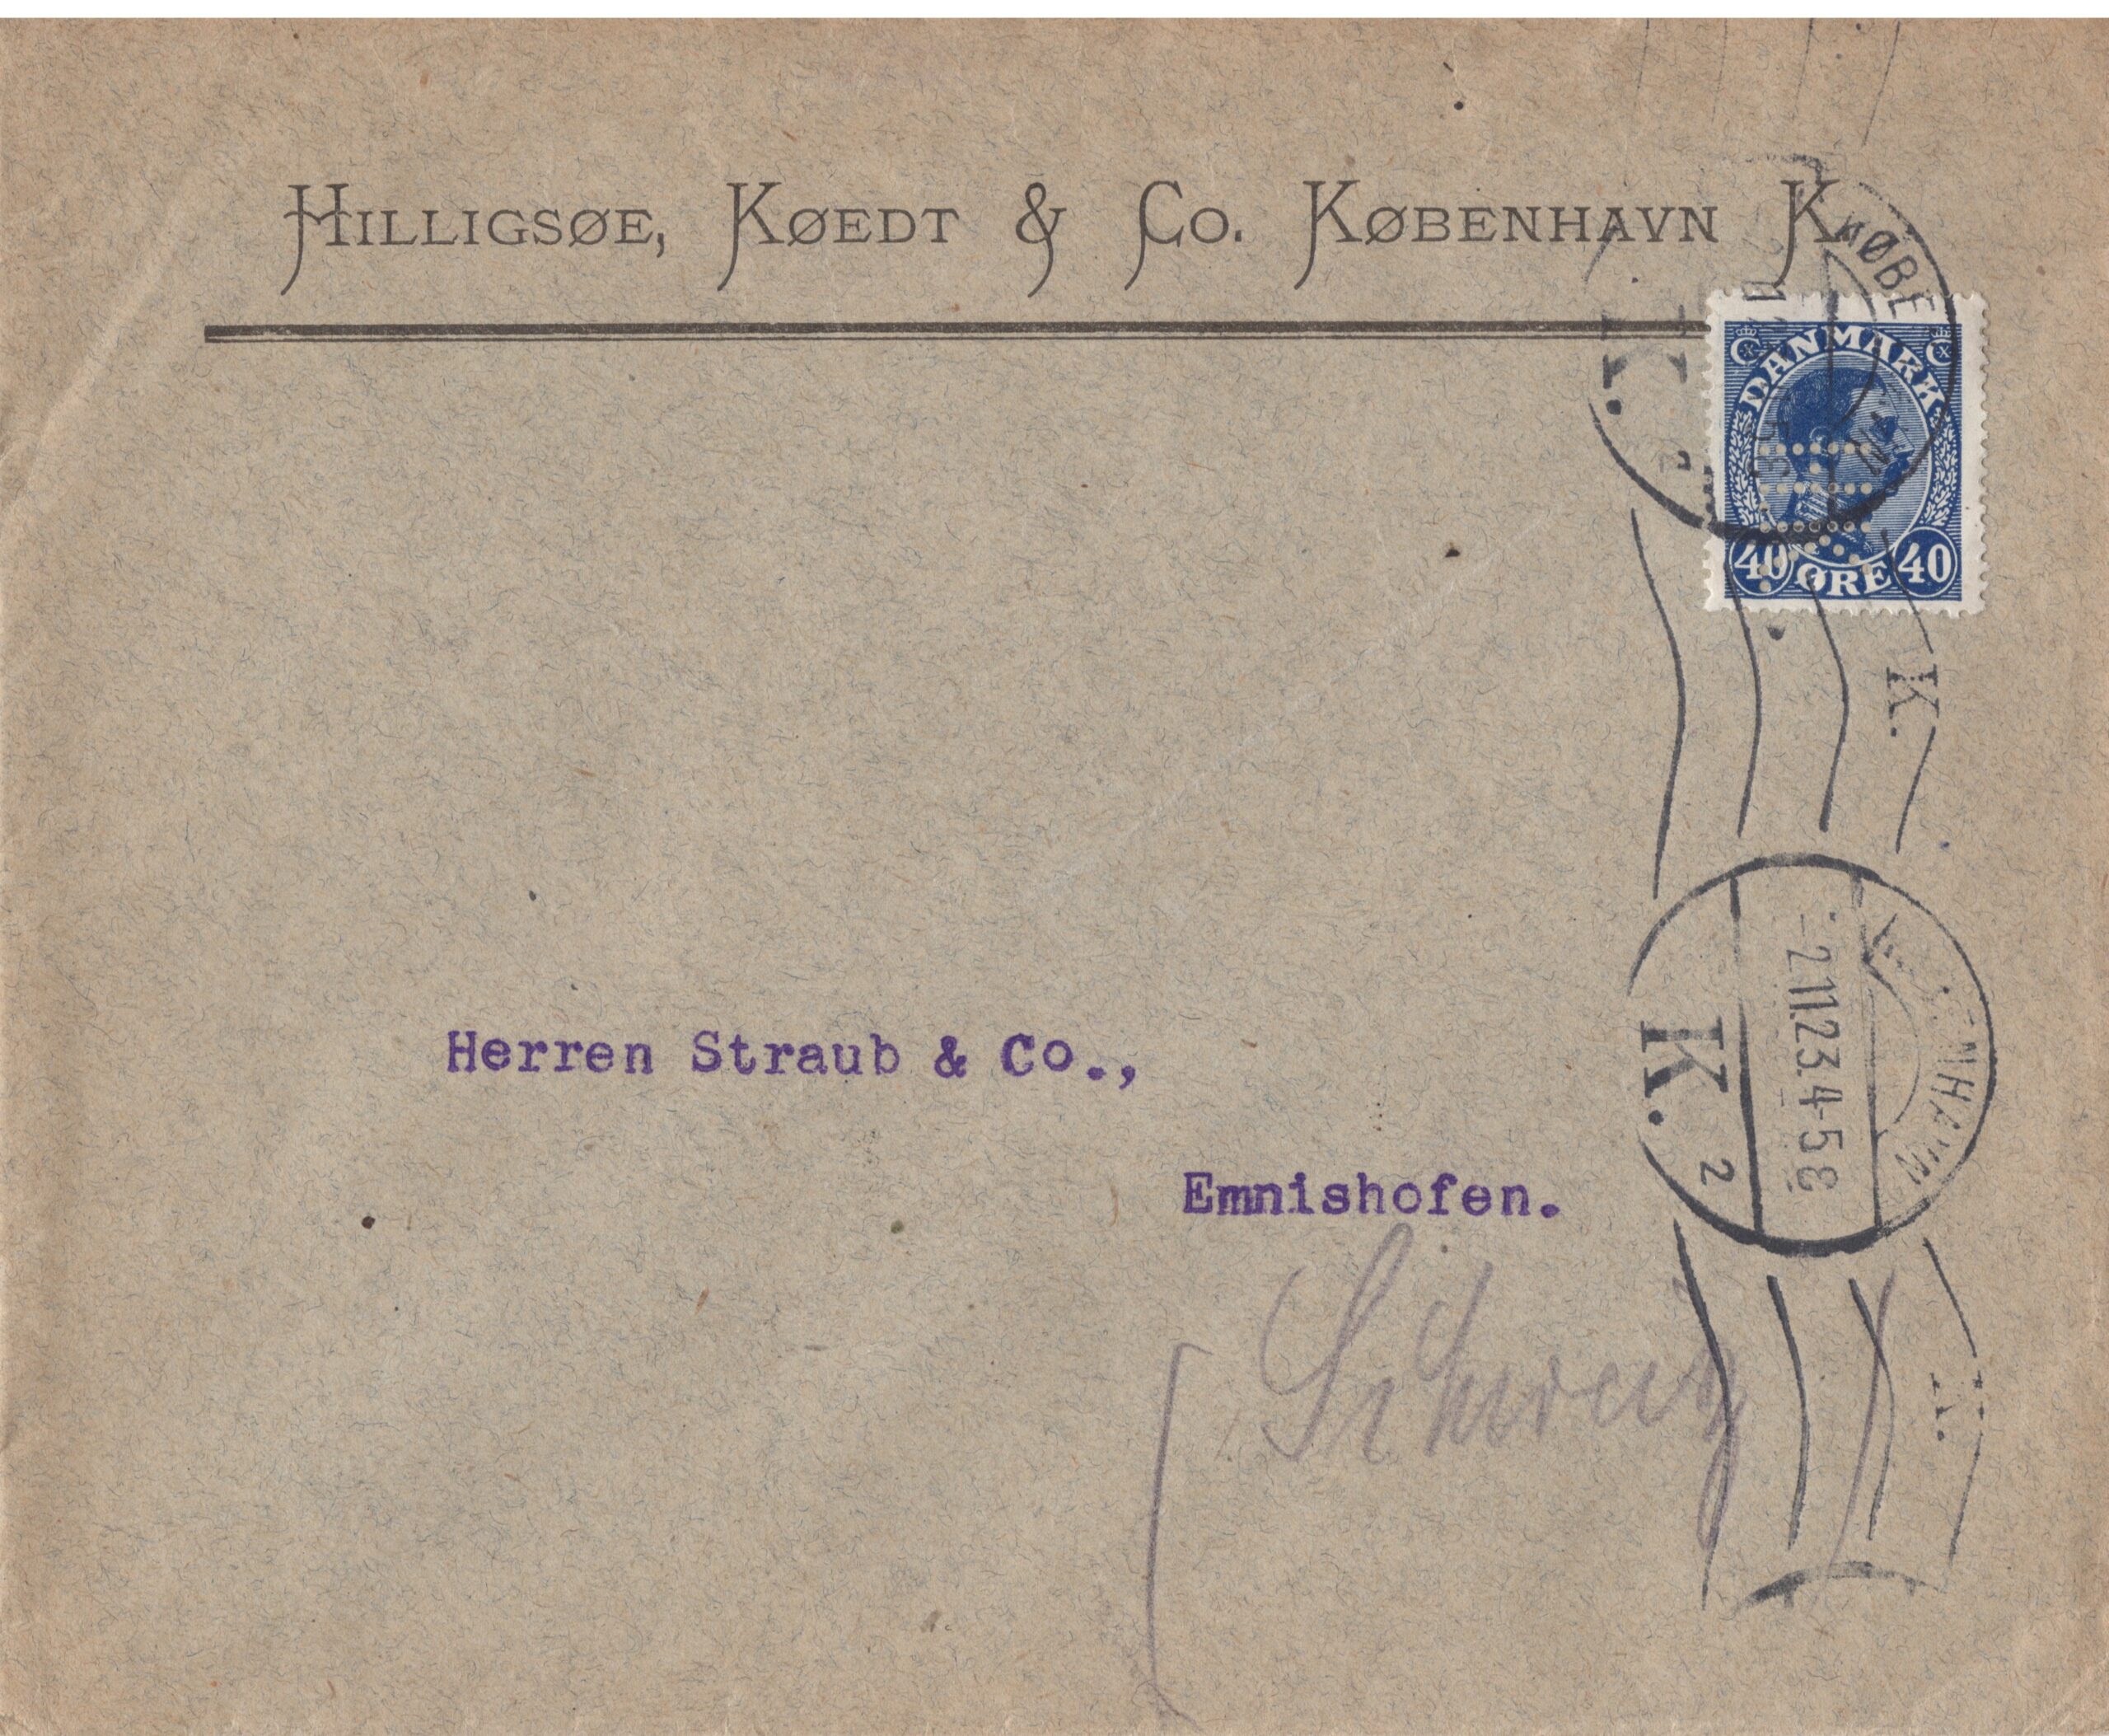 HILLIGSØE, KØEDT & CO. KØBENHAVN K.
KØBE
DANMARK
40 ØRE 40
K.
-2.11.23.4-5 E
K. 2
Herren Straub & Co.,
Emnishofen.
(Schweiz)